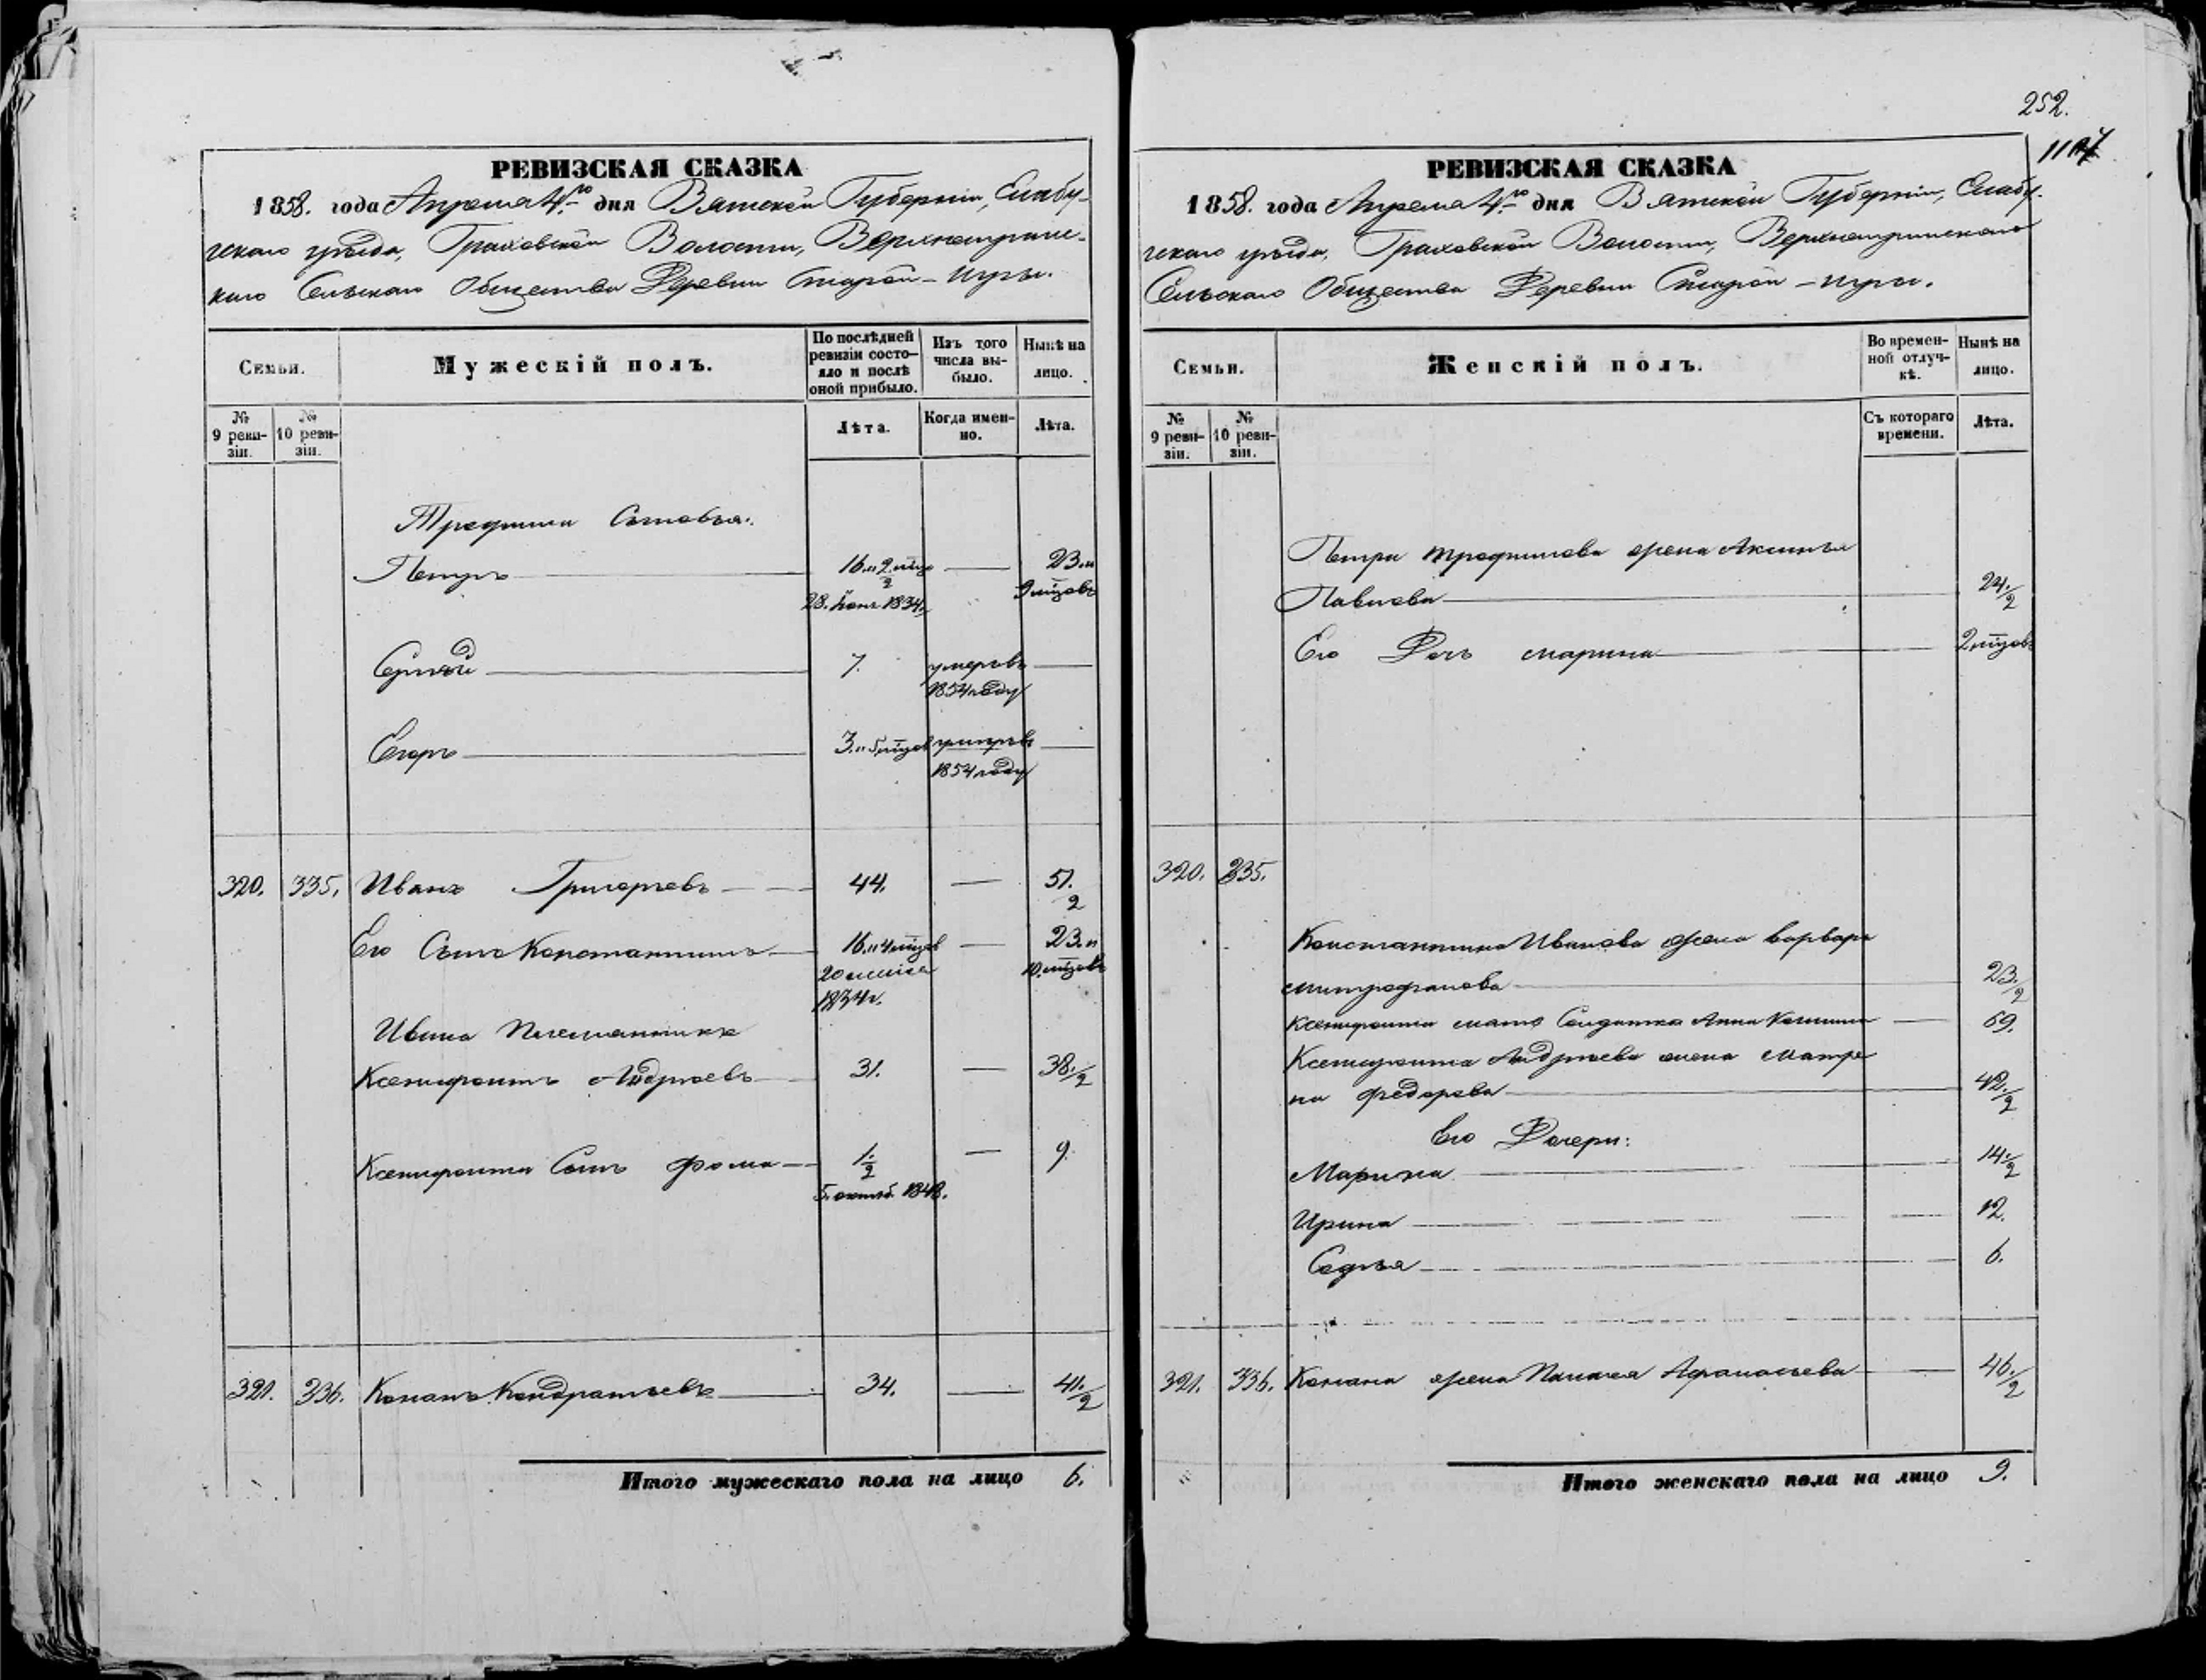 252.
1107
РЕВИЗСКАЯ СКАЗКА
1858. года Апреля 4го дня Вятской Губерніи, Елабу-
гскаго уѣзда, Граховской Волости, Верхнеигринс-
каго Сельскаго Общества Деревни Старой-Игры.
Семьи.
Мужескій полъ.
По послѣдней ревизіи состо-яло и послѣ оной прибыло.
Изъ того числа вы-было.
Нынѣ на лицо.
№ 9 реви-зіи.
№ 10 реви-зіи.
Лѣта.
Когда имен-но.
Лѣта.
Трофима Сыновья:
Петръ 16. и 2 мцо — 23. и
2
28. Іюня 1834. 9 мцовъ
Сергѣй 7. умеръ въ —
1854 году
Егоръ 3. и 5 мцов умеръ въ —
1854 году
320. 335. Иванъ Григорьевъ 44. — 51.
2
Его Сынъ Константинъ 16. и 4 мцов — 23. и
20 1834 г. 10. мцовъ
Ивана Племянникъ
Ксенофонтъ Андреевъ 31. — 38./2
Ксенофонта Сынъ Фома 1. — 9.
2
5. октяб. 1848.
321. 336. Конанъ Кондратьевъ 34. — 41./2
Итого мужескаго пола на лицо 6.
РЕВИЗСКАЯ СКАЗКА
1858. года Апреля 4го дня Вятской Губерніи, Елабу-
гскаго уѣзда, Граховской Волости, Верхнеигринскаго
Сельскаго Общества Деревни Старой-Игры.
Семьи.
Женскій полъ.
Во времен-ной отлуч-кѣ.
Нынѣ на лицо.
№ 9 реви-зіи.
№ 10 реви-зіи.
Съ котораго времени.
Лѣта.
Петра Трофимова жена Аксинья
Павлова 24./2
Его Дочь Марина 2 мцовъ
320. 335.
Константина Иванова жена Варвара
Митрофанова 23./2
Ксенофонта мать Солдатка Анна 69.
Ксенофонта Андреева жена Матре
на Федорова 42./2
Его Дочери:
Марина 14./2
Ирина 12.
Софья 6.
321. 336. Конана жена Афанасьева 46./2
Итого женскаго пола на лицо 9.